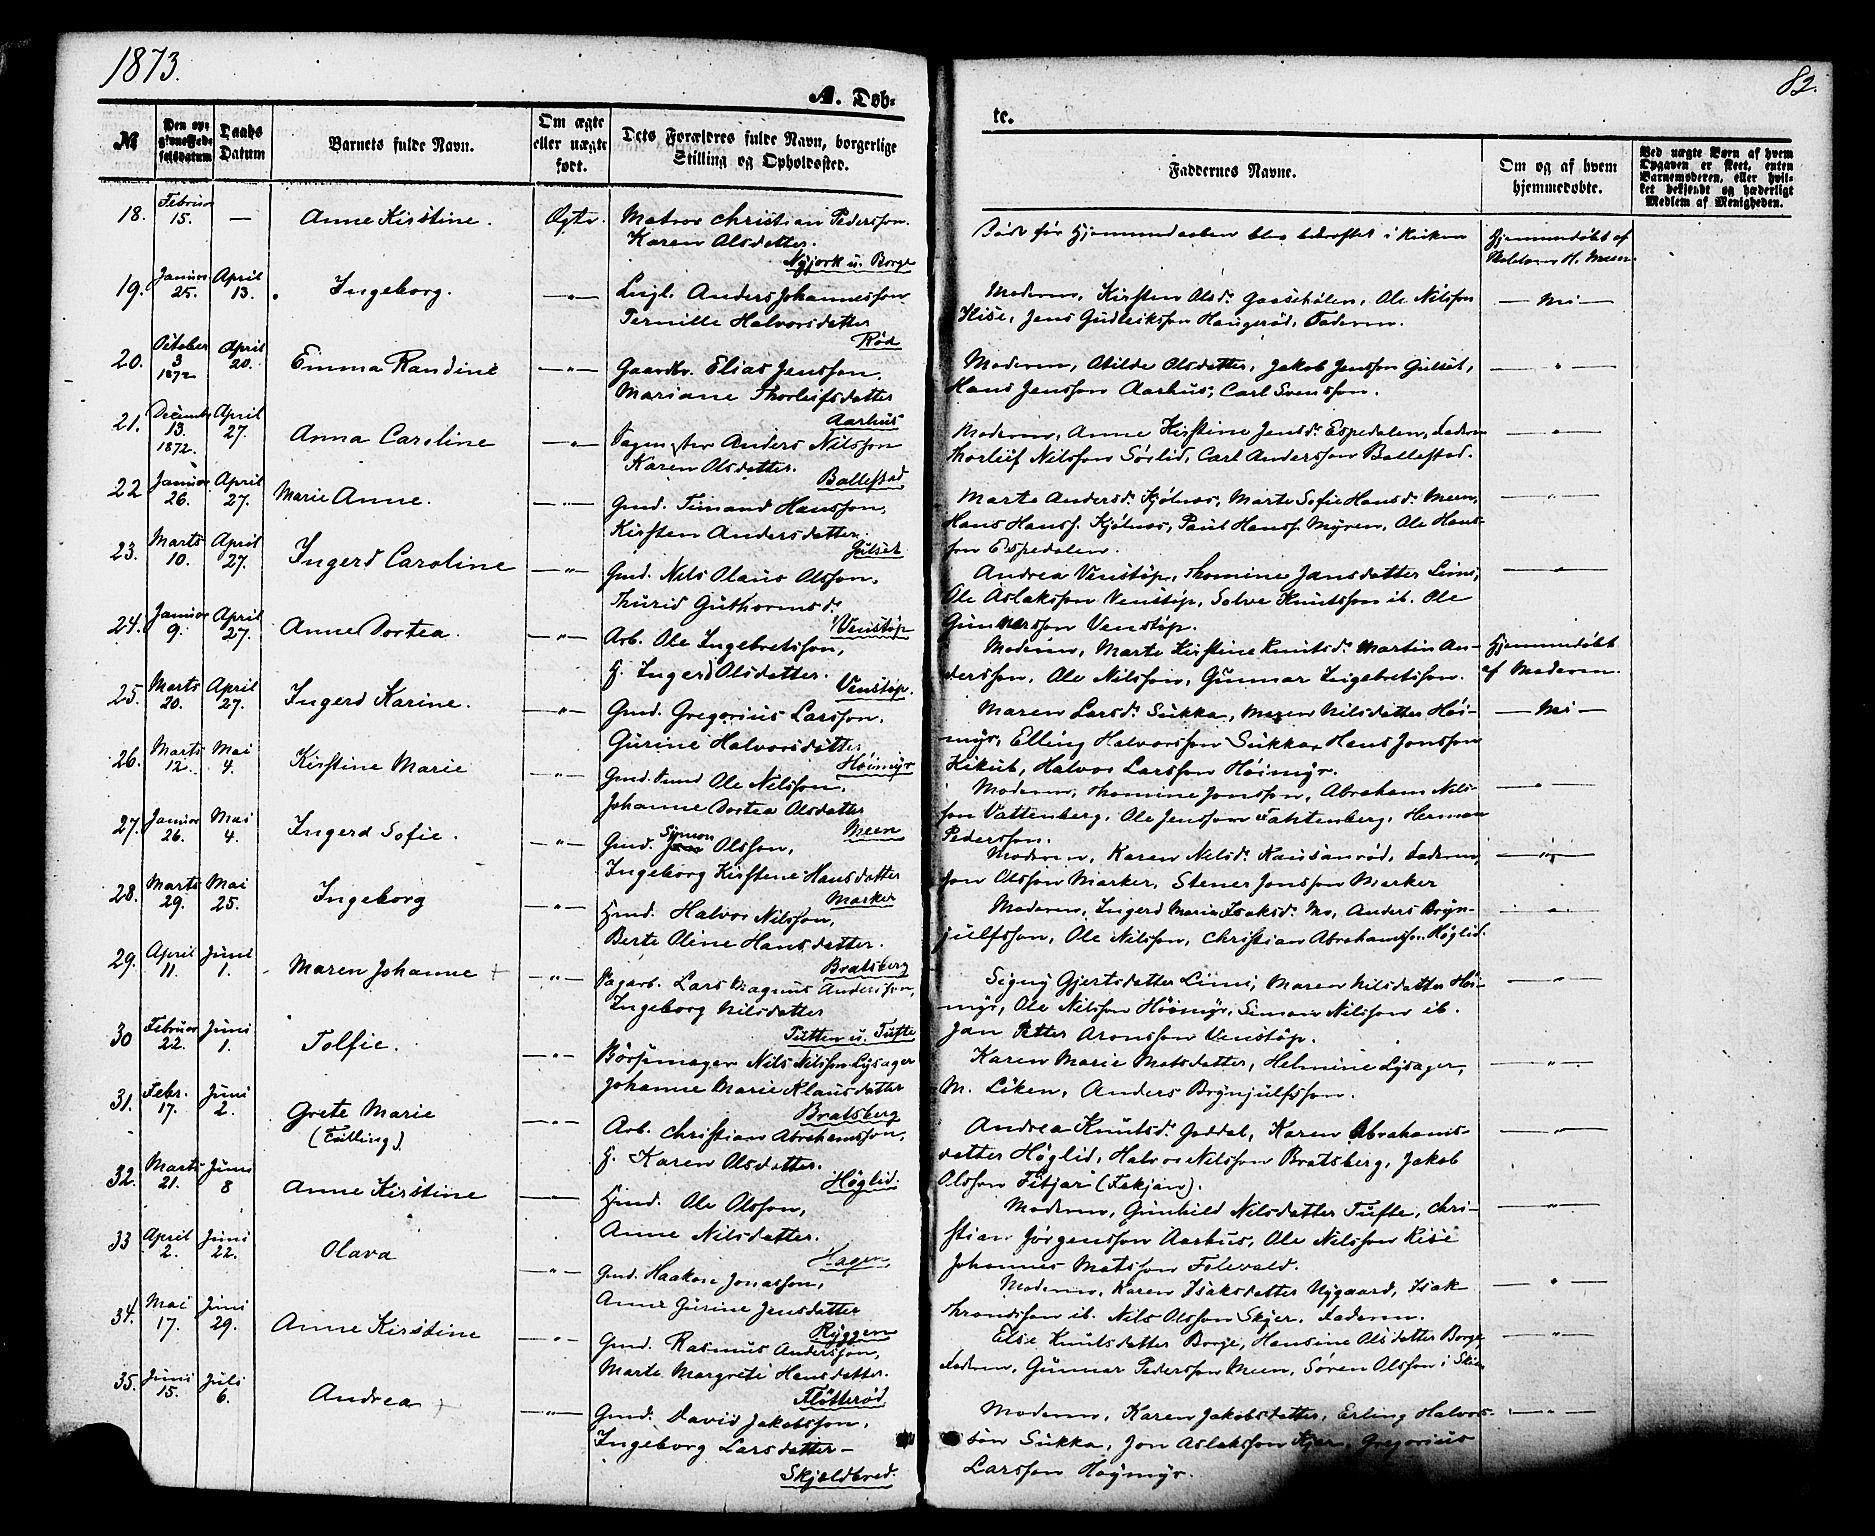 1873.
A. Døb-
№
Den opgivne Fødselsdatum
Daabs Datum
Barnets fulde Navn.
Om ægte eller uægte født.
Dets Forældres fulde Navn, borgerlige Stilling og Opholdssted.
18. Februar 15. — Anne Kirstine. Ægte. Matros Christian Pedersson.
Karen Olsdatter.
Nyjork u. Borge
19. Januar 25. April 13. Ingeborg. —"— Anders Johannesson
Pernille Halvorsdatter
Rød
20. October 3 1872 April 20. Emma Randine —"— Gaardbr. Elias Jensson.
Mariane Thorleifsdatter
Aarhus
21. Decemb. 13. 1872. April 27. Anna Caroline —"— Anders Nilsson
Karen Olsdatter.
Ballestad
22 Januar 26. April 27. Marie Anne. —"— Gmd. Timand Hansson,
Kirsten Andersdatter.
Gulset
23. Marts 10. April 27. Ingerd Caroline —"— Gmd. Nils Olaus Olsson,
Thurid Guthormsd.
Venstøp
24. Januar 9. April 27. Anne Dortea. —"— Arb. Ole Ingebretsson,
H. Ingerd Olsdatter.
Venstøp.
25. Marts 20. April 27. Ingerd Karine. —"— Gmd. Gregorius Larsson,
Gurine Halvorsdatter
Høimyr
26. Marts 12. Mai 4. Kirstine Marie —"— Gmd. Ole Nilsson.
Johanne Dortea Olsdatter
Meen
27. Januar 26. Mai 4. Ingerd Sofie. —"— Gmd. Symon Olsson,
Ingeborg Kirstene Hansdatter
Marker
28. Marts 29. Mai 25. Ingeborg —"— Hmd. Halvor Nilsson,
Berte Oline Hansdatter.
Bratsberg
29. April 11. Juni 1. Maren Johanne + —"— Dagarb. Lars Magnus Andersson,
Ingeborg Nilsdatter
Tutten u. Tufte
30 Februar 22. Juni 1. Tolfie. —"— Børsemager Nils Nilsson Lysager
Johanne Marie Klausdatter
Bratsberg
31. Febr. 17. Juni 2. Grete Marie —"— Arb. Christian Abrahamsson,
(Tvilling.)
H. Karen Olsdatter.
Høglid.
32. Marts 21. Juni 8 Anne Kirstine —"— Hmd. Ole Olsson,
Anne Nilsdatter.
Hagen
33 April 2. Juni 22. Olava —"— Gmd. Haakon Jonasson,
Anne Gurine Jensdatter
Ryggen
34. Mai 17. Juni 29. Anne Kirstine —"— Gmd. Rasmus Andersson,
Marte Margrete Hansdatter.
Fløtterød
35. Juni 15. Juli 6. Andrea + —"— Gmd. David Jakobsson,
Ingeborg Larsdatter —
Skjeldbred.
82.
te.
Faddernes Navne.
Om og af hvem hjemmedøbte.
Ved uægte Børn af hvem Opgaven er skeet, enten Barnemoderen, eller hvilket bekjendt og hæderligt Medlem af Menigheden.
Døde før Hjemmedaaben blev bekræftet i Kirken Hjemmedøbt af
H. Meen.
Moderen, Kirsten Olsd. Gaasehølen, Ole Nilsson — Nei —
Kise, Jens Gudleiksson Haugerød, Faderen.
Moderen, Olsdatter, Jakob Jensson Gulset, —"—
Hans Jensson Aarhus, Carl Svensson.
Moderen, Anne Kirstine Jensd. Espedalen, Faderen —"—
Thorleif Nilsson Sørlid, Carl Andersson Ballestad.
Marte Andersd. Kjølnes, Marte Sofie Hansd. Meen, —"—
Hans Hanss. Kjølnes, Paul Hanss. Myren, Ole Hans-
son Espedalen.
Andrea Venstøp, Thomine Jansdatter Limi, —"—
Ole Aslaksson Venstøp, Solve Knutsson ib. Ole
Gunnersson Venstøp.
Moderen, Marte Kirstine Knutsd. Martin An- Hjemmedøbt
dersson, Ole Nilsson, Gunnar Ingebretsson. af Moderen.
Maren Larsd. Sukka, Maren Nilsdatter Høi- — Nei —
myr, Elling Halvorsson Sukka, Hans Jonsson
Kikut, Halvor Larsson Høimyr.
Moderen, Thomine Jonsson, Abraham Nils- —"—
son Vattenberg, Ole Jensson Herman
Pedersson.
Moderen, Karen Nilsd. Faderen, —"—
Jon Olsson Marker, Stener Jonsson Marker
Moderen, Ingerd Maria Isaksd. Mo, Anders Bryn- —"—
julfsson, Ole Nilsson, Christian Abrahamsson Høglid.
Signy Gjertsdatter Limi, Maren Nilsdatter Høi- —"—
myr, Ole Nilsson Høimyr, Simon Nilsson ib.
Jan Petter Aronsson Venstøp.
Karen Marie Matsdatter, Helmine Lysager, —"—
M. Liken, Anders Brynjulfsson.
Andrea Knutsd. Joddal, Karen Abrahams- —"—
datter Høglid, Halvor Nilsson Bratsberg, Jakob
Olsson Fitjar (Fekjan).
Moderen, Gunhild Nilsdatter Tufte, Chri- —"—
stian Jørgensson Aarhus, Ole Nilsson Kise
Johannes Matsson Folevald.
Moderen, Karen Isaksdatter Nygaard, Isak —"—
Throndsson ib. Nils Olsson Skyer, Faderen.
Else Knutsdatter Borge, Hansine Olsdatter Borge, —"—
Faderen, Gunnar Pedersson Meen, Søren Olsson i Skien
Moderen, Karen Jakobsdatter, Erling Halvor- —"—
søn Sukka, Jon Aslaksson Gregorius
Larsson Høymyr.